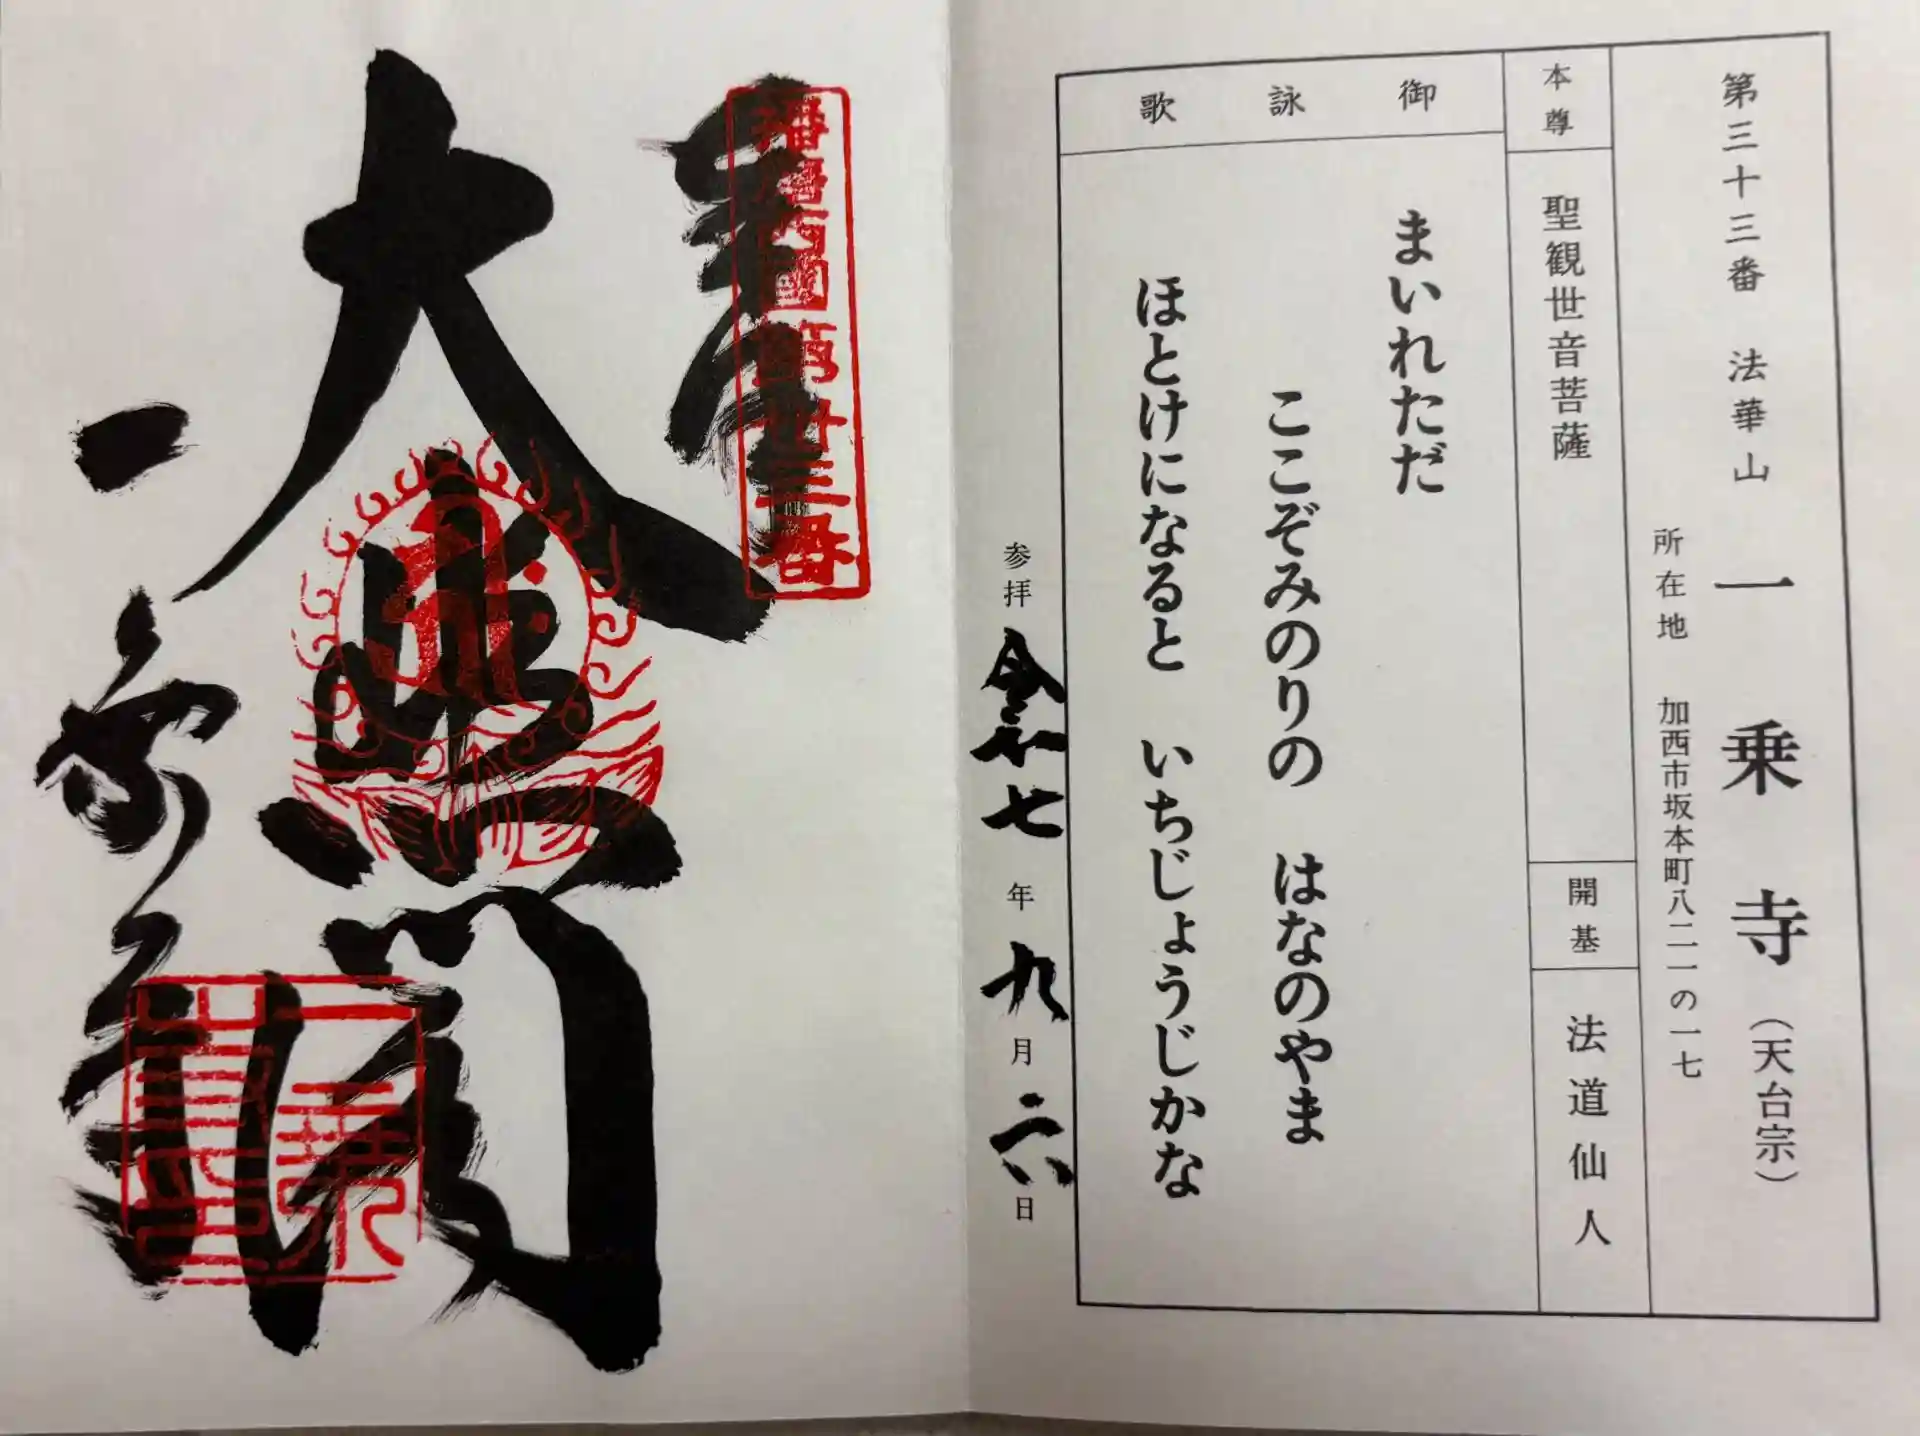 第三十三番 法華山 一乗寺(天台宗)
所在地 加西市坂本町八二一の一七
本尊 聖観世音菩薩
開基 法道仙人
御詠歌
まいれただ
ここぞみのりの はなのやま
ほとけになると いちじょうじかな
参拝 令和七年九月二八日
奉拝
播磨西國第卅三番
大悲閣
一乗寺